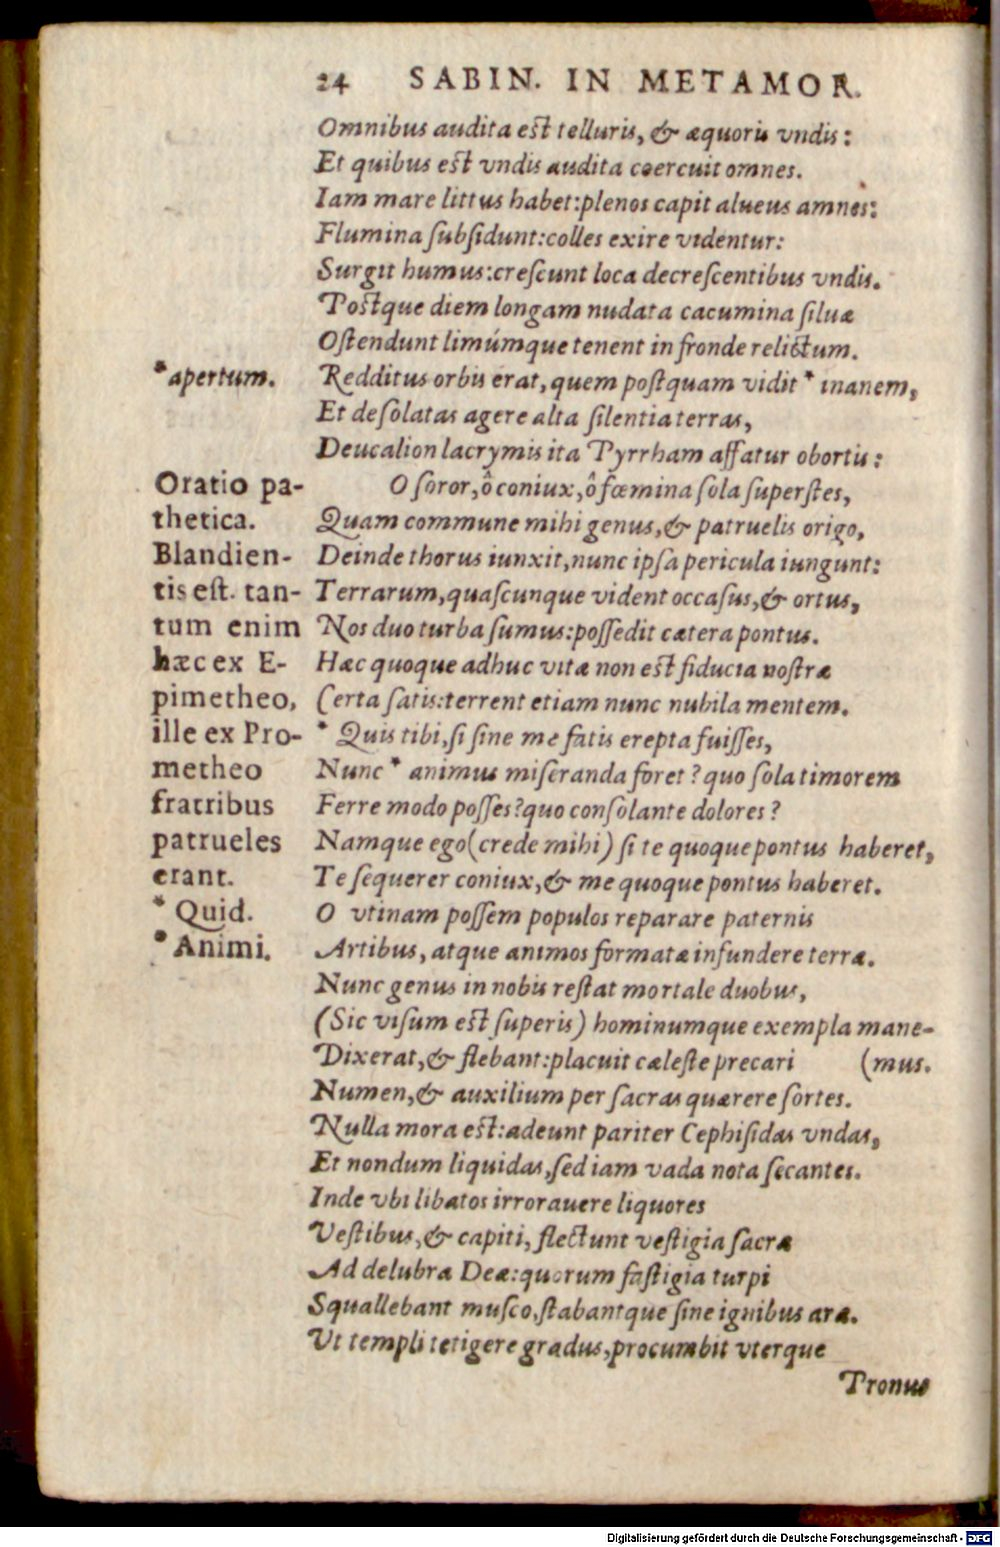 24 SABIN. IN METAMOR.
Omnibus audita est telluris, & æquoris vndis:
Et quibus est vndis audita coercuit omnes.
Iam mare littus habet:plenos capit alueus amnes:
Flumina ſubſidunt:colles exire videntur:
Surgit humus:creſcunt loca decreſcentibus vndis.
Postque diem longam nudata cacumina ſiluæ
Oſtendunt limúmque tenent in fronde relictum.
*apertum.
Redditus orbis erat, quem poſtquam vidit * inanem,
Et deſolatas agere alta ſilentia terras,
Deucalion lacrymis ita Pyrrham affatur obortis:
Oratio pa-
thetica.
Blandien-
tis eſt. tan-
tum enim
hæc ex E-
pimetheo,
ille ex Pro-
metheo
fratribus
patrueles
erant.
* Quid.
* Animi.
O ſoror, ô coniux, ô fœmina ſola ſuperſtes,
Quam commune mihi genus, & patruelis origo,
Deinde thorus iunxit, nunc ipſa pericula iungunt:
Terrarum, quaſcunque vident occaſus, & ortus,
Nos duo turba ſumus:poſſedit cætera pontus.
Hæc quoque adhuc vitæ non est fiducia noſtræ
Certa ſatis:terrent etiam nunc nubila mentem.
* Quis tibi, ſi ſine me fatis erepta fuiſſes,
Nunc * animus miſeranda foret? quo ſola timorem
Ferre modo poſſes? quo conſolante dolores?
Namque ego (crede mihi) ſi te quoque pontus haberet,
Te ſequerer coniux, & me quoque pontus haberet.
O vtinam poſſem populos reparare paternis
Artibus, atque animos formatæ infundere terræ.
Nunc genus in nobis reſtat mortale duobus,
(Sic viſum est ſuperis) hominumque exempla mane-
Dixerat, & flebant:placuit cæleſte precari (mus.
Numen, & auxilium per ſacras quærere ſortes.
Nulla mora est:adeunt pariter Cephiſidas vndas,
Et nondum liquidas, ſed iam vada nota ſecantes.
Inde vbi libatos irrorauere liquores
Veſtibus, & capiti, flectunt veſtigia ſacræ
Ad delubra Deæ:quorum faſtigia turpi
Squallebant muſco, ſtabantque ſine ignibus aræ.
Vt templi tetigere gradus, procumbit vterque
Pronus
Digitalisierung gefördert durch die Deutsche Forschungsgemeinschaft - DFG